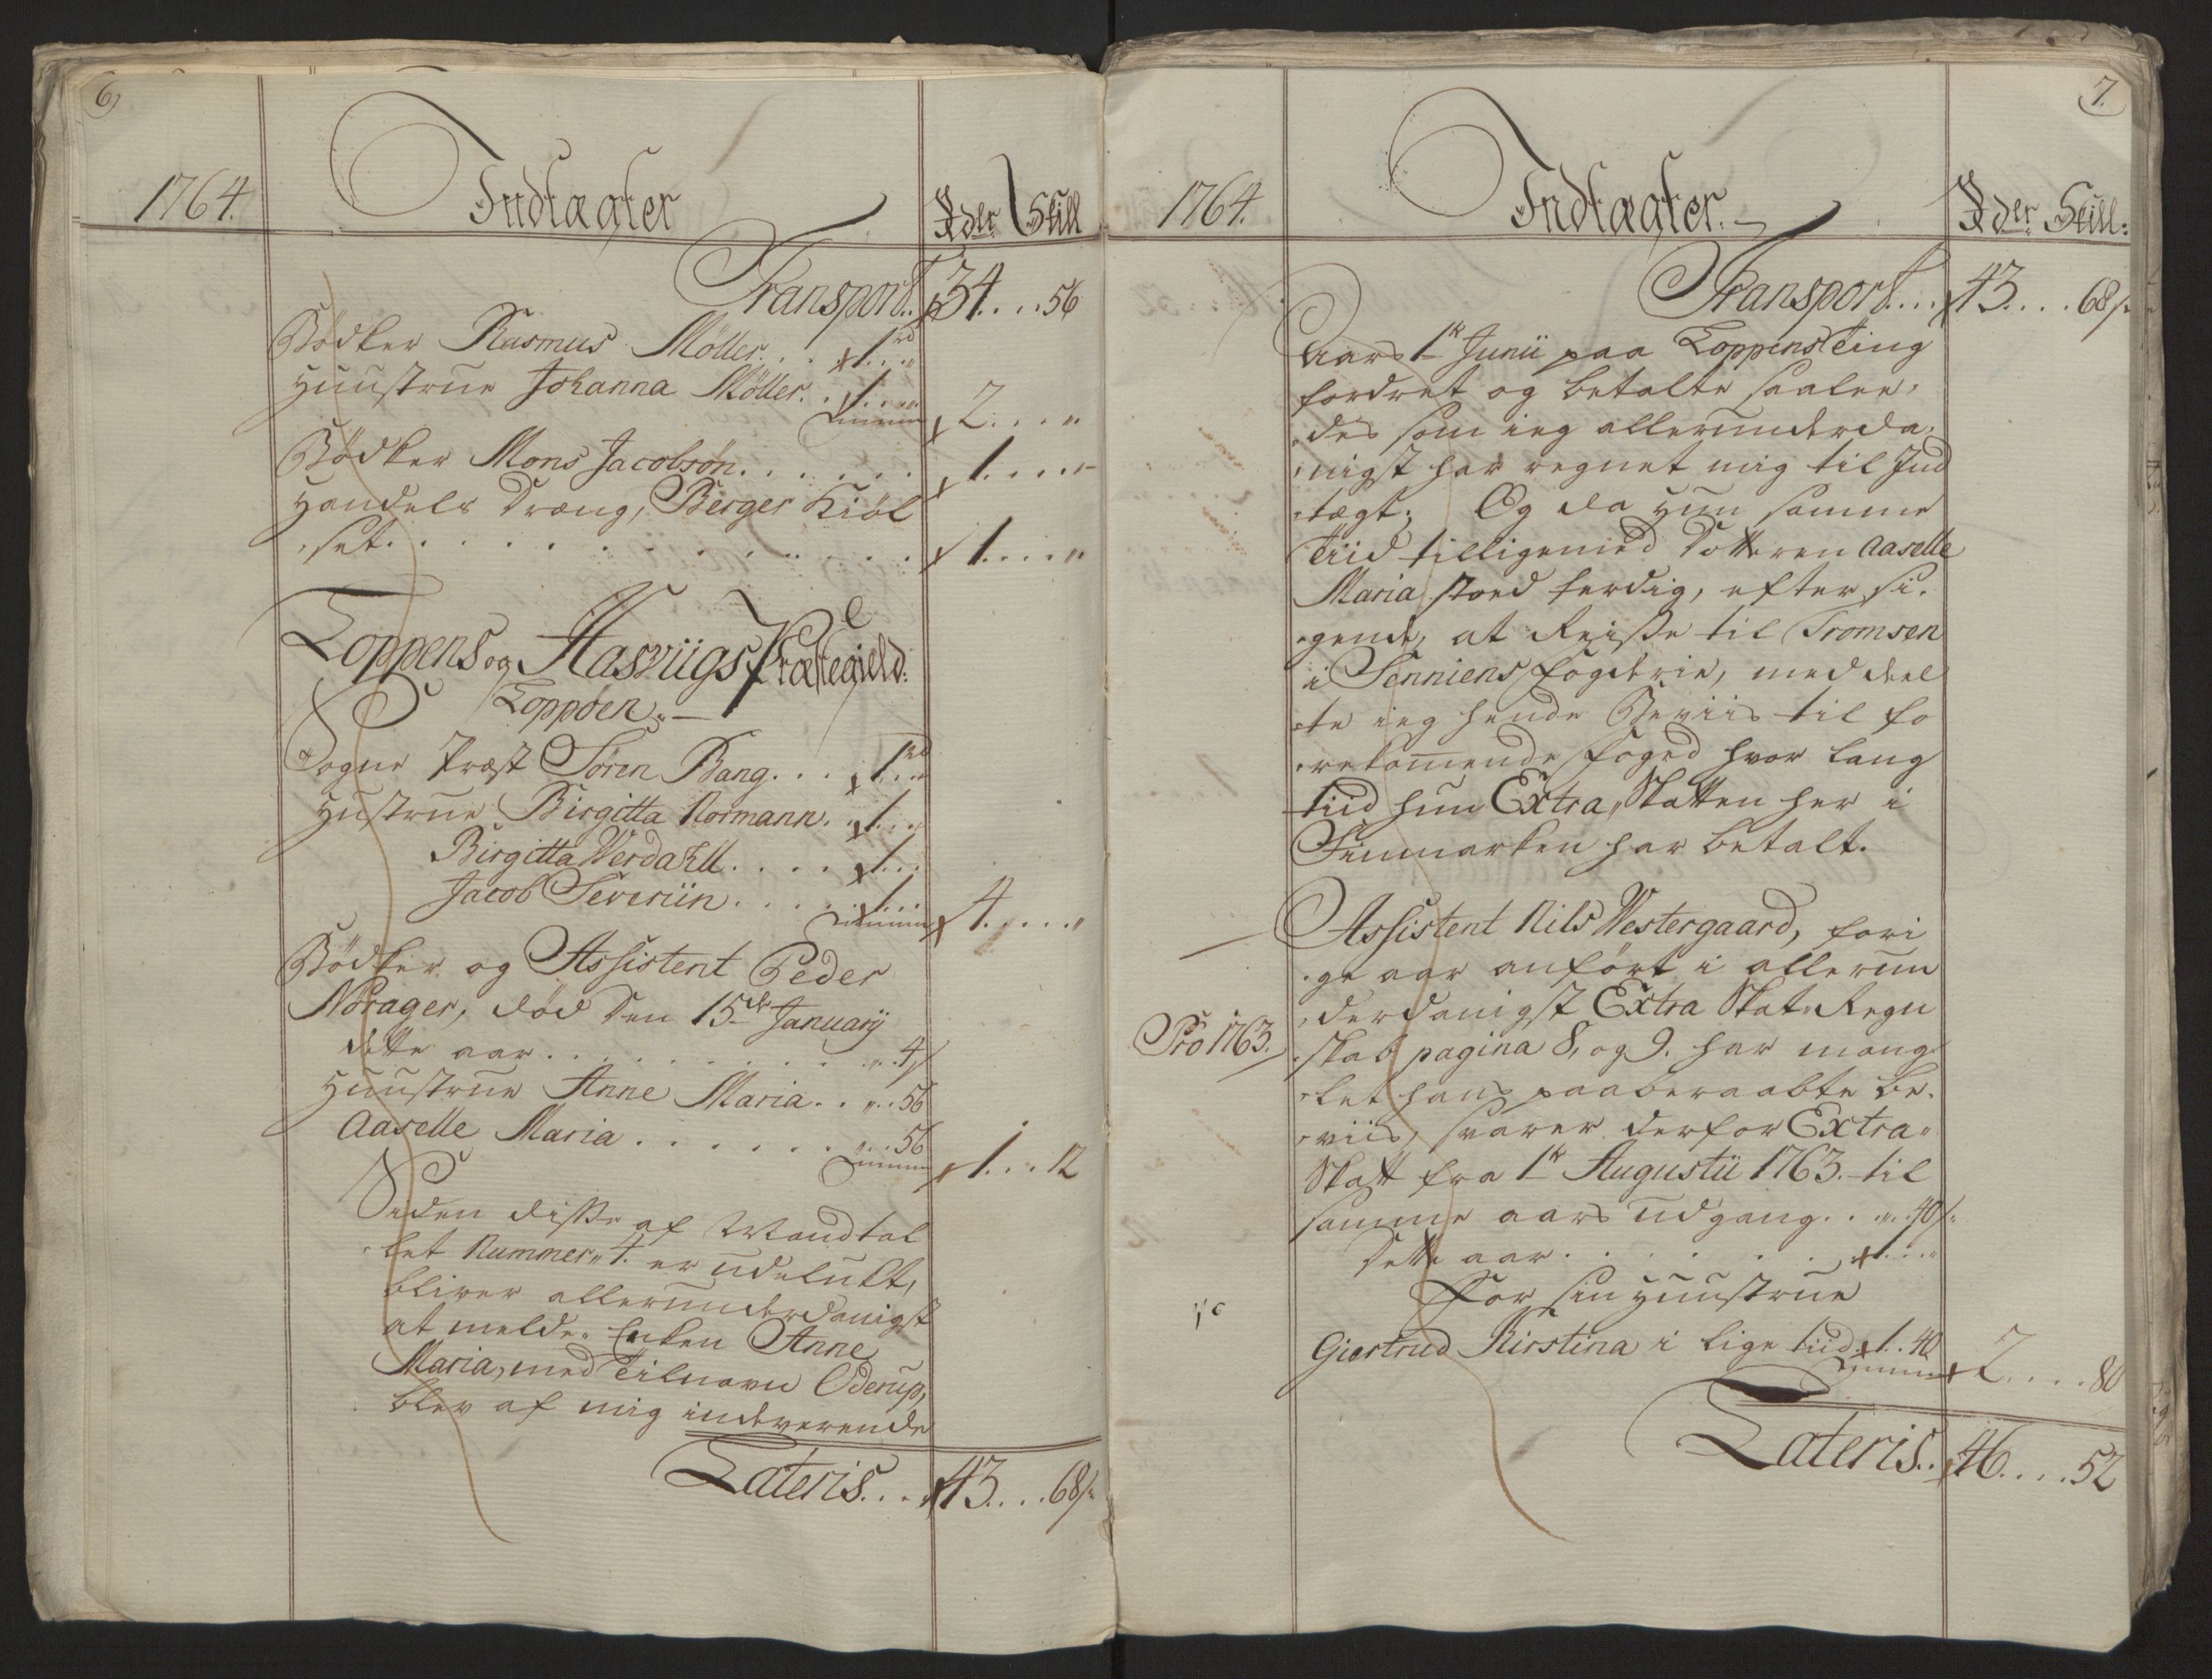 6)
1764.
Indtægter
Rdlr Skill
Transport.. 34....56
Bödker Rasmus Möller... 1rd..."
Huustrue Johanna Möller.. 1..."
2...."
Bödker Mons Jacobsön....... 1...."
Handels Dræng, Berger Kiöl
set............... 1...."
Loppens og Hasviigs Præstegield:
Loppöen.
Sogne Præst Sören Bang... 1rd..
Hustrue Birgitta Normann. 1...
Birgitta Werdahll..... 1...
Jacob Severiin..... 1...
4....."
Bödker og Assistent Peder
Nörager, död den 15de January
dette aar........... "..4/
Huustrue Anne Maria.. "..56
Aaselle Maria....... "..56
1...12
Siden disse af Mandtal
let Nummer 4. er udelukt,
bliver allerunderdanigst
at melde. Enken Anne
Maria, med Tilnavn Oderup,
blev af mig indeverende
Lateris... 43....68/:
7.
1764.
Indtægter.
Rdlr Skill:
Transport... 43....68/:
Aars 1te Junii paa Loppens Ting
fordret og betalte saalee,
des som ieg allerunderda,
nigst har regnet mig til Ind
tægt; Og da hun samme
Tiid tilligemed Dotteren Aaselle
Maria stoed færdig, efter si,
gende, at Reisse til Tromsen
i Senniens fogderie, meddeel
te ieg hende Beviis til fo
rekommende foged hvor lang
tiid hun Extra Skatten her i
Finmarken har betalt.
Assistent Nils Westergaard, fori
ge aar anfört i allerun
derdanigst Extra Skat Regn
Pro 1763.
skab pagina 8, og 9. har mang
let hans paaberaabte be,
viis, svarer derfor Extra
Skatt fra 1te Augustii 1763. til
samme aars udgang.. "..40/:
dette aar....... 1..."
For sin Huustrue
Giertrud Kirstina i lige tiid. 1..40
2....80
Lateris.. 46....52